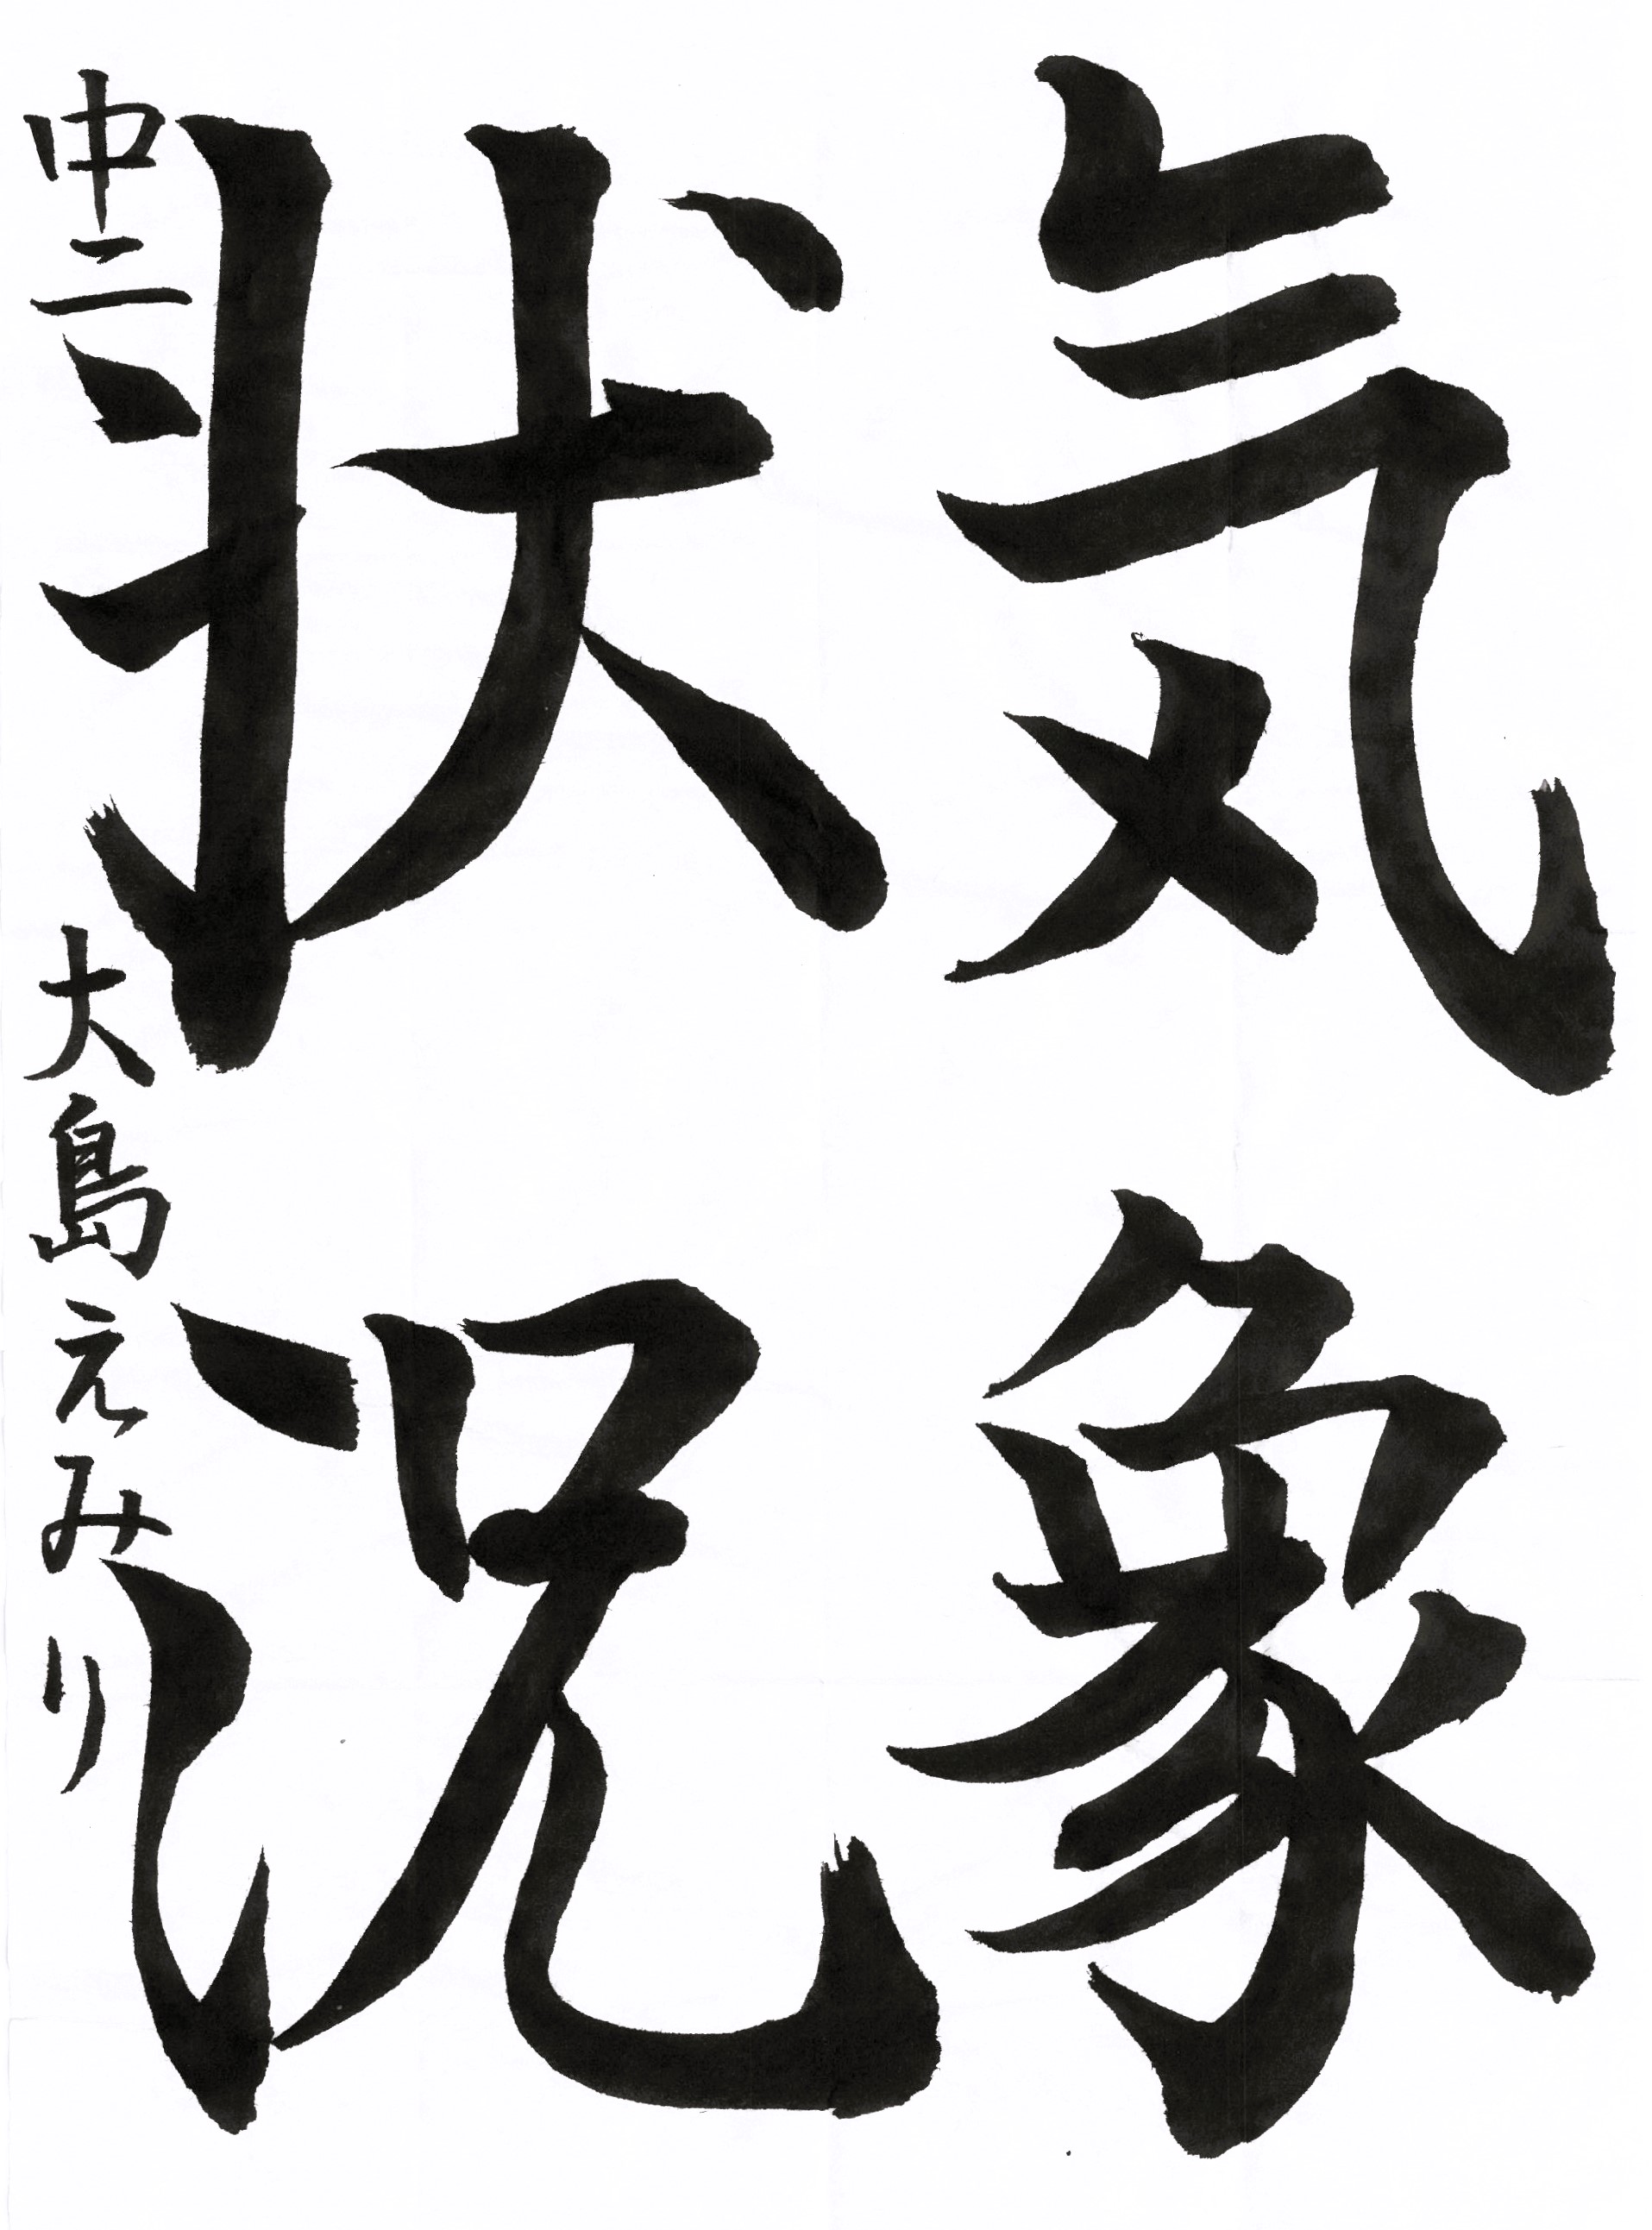 気象
状況
中二 大島えみり